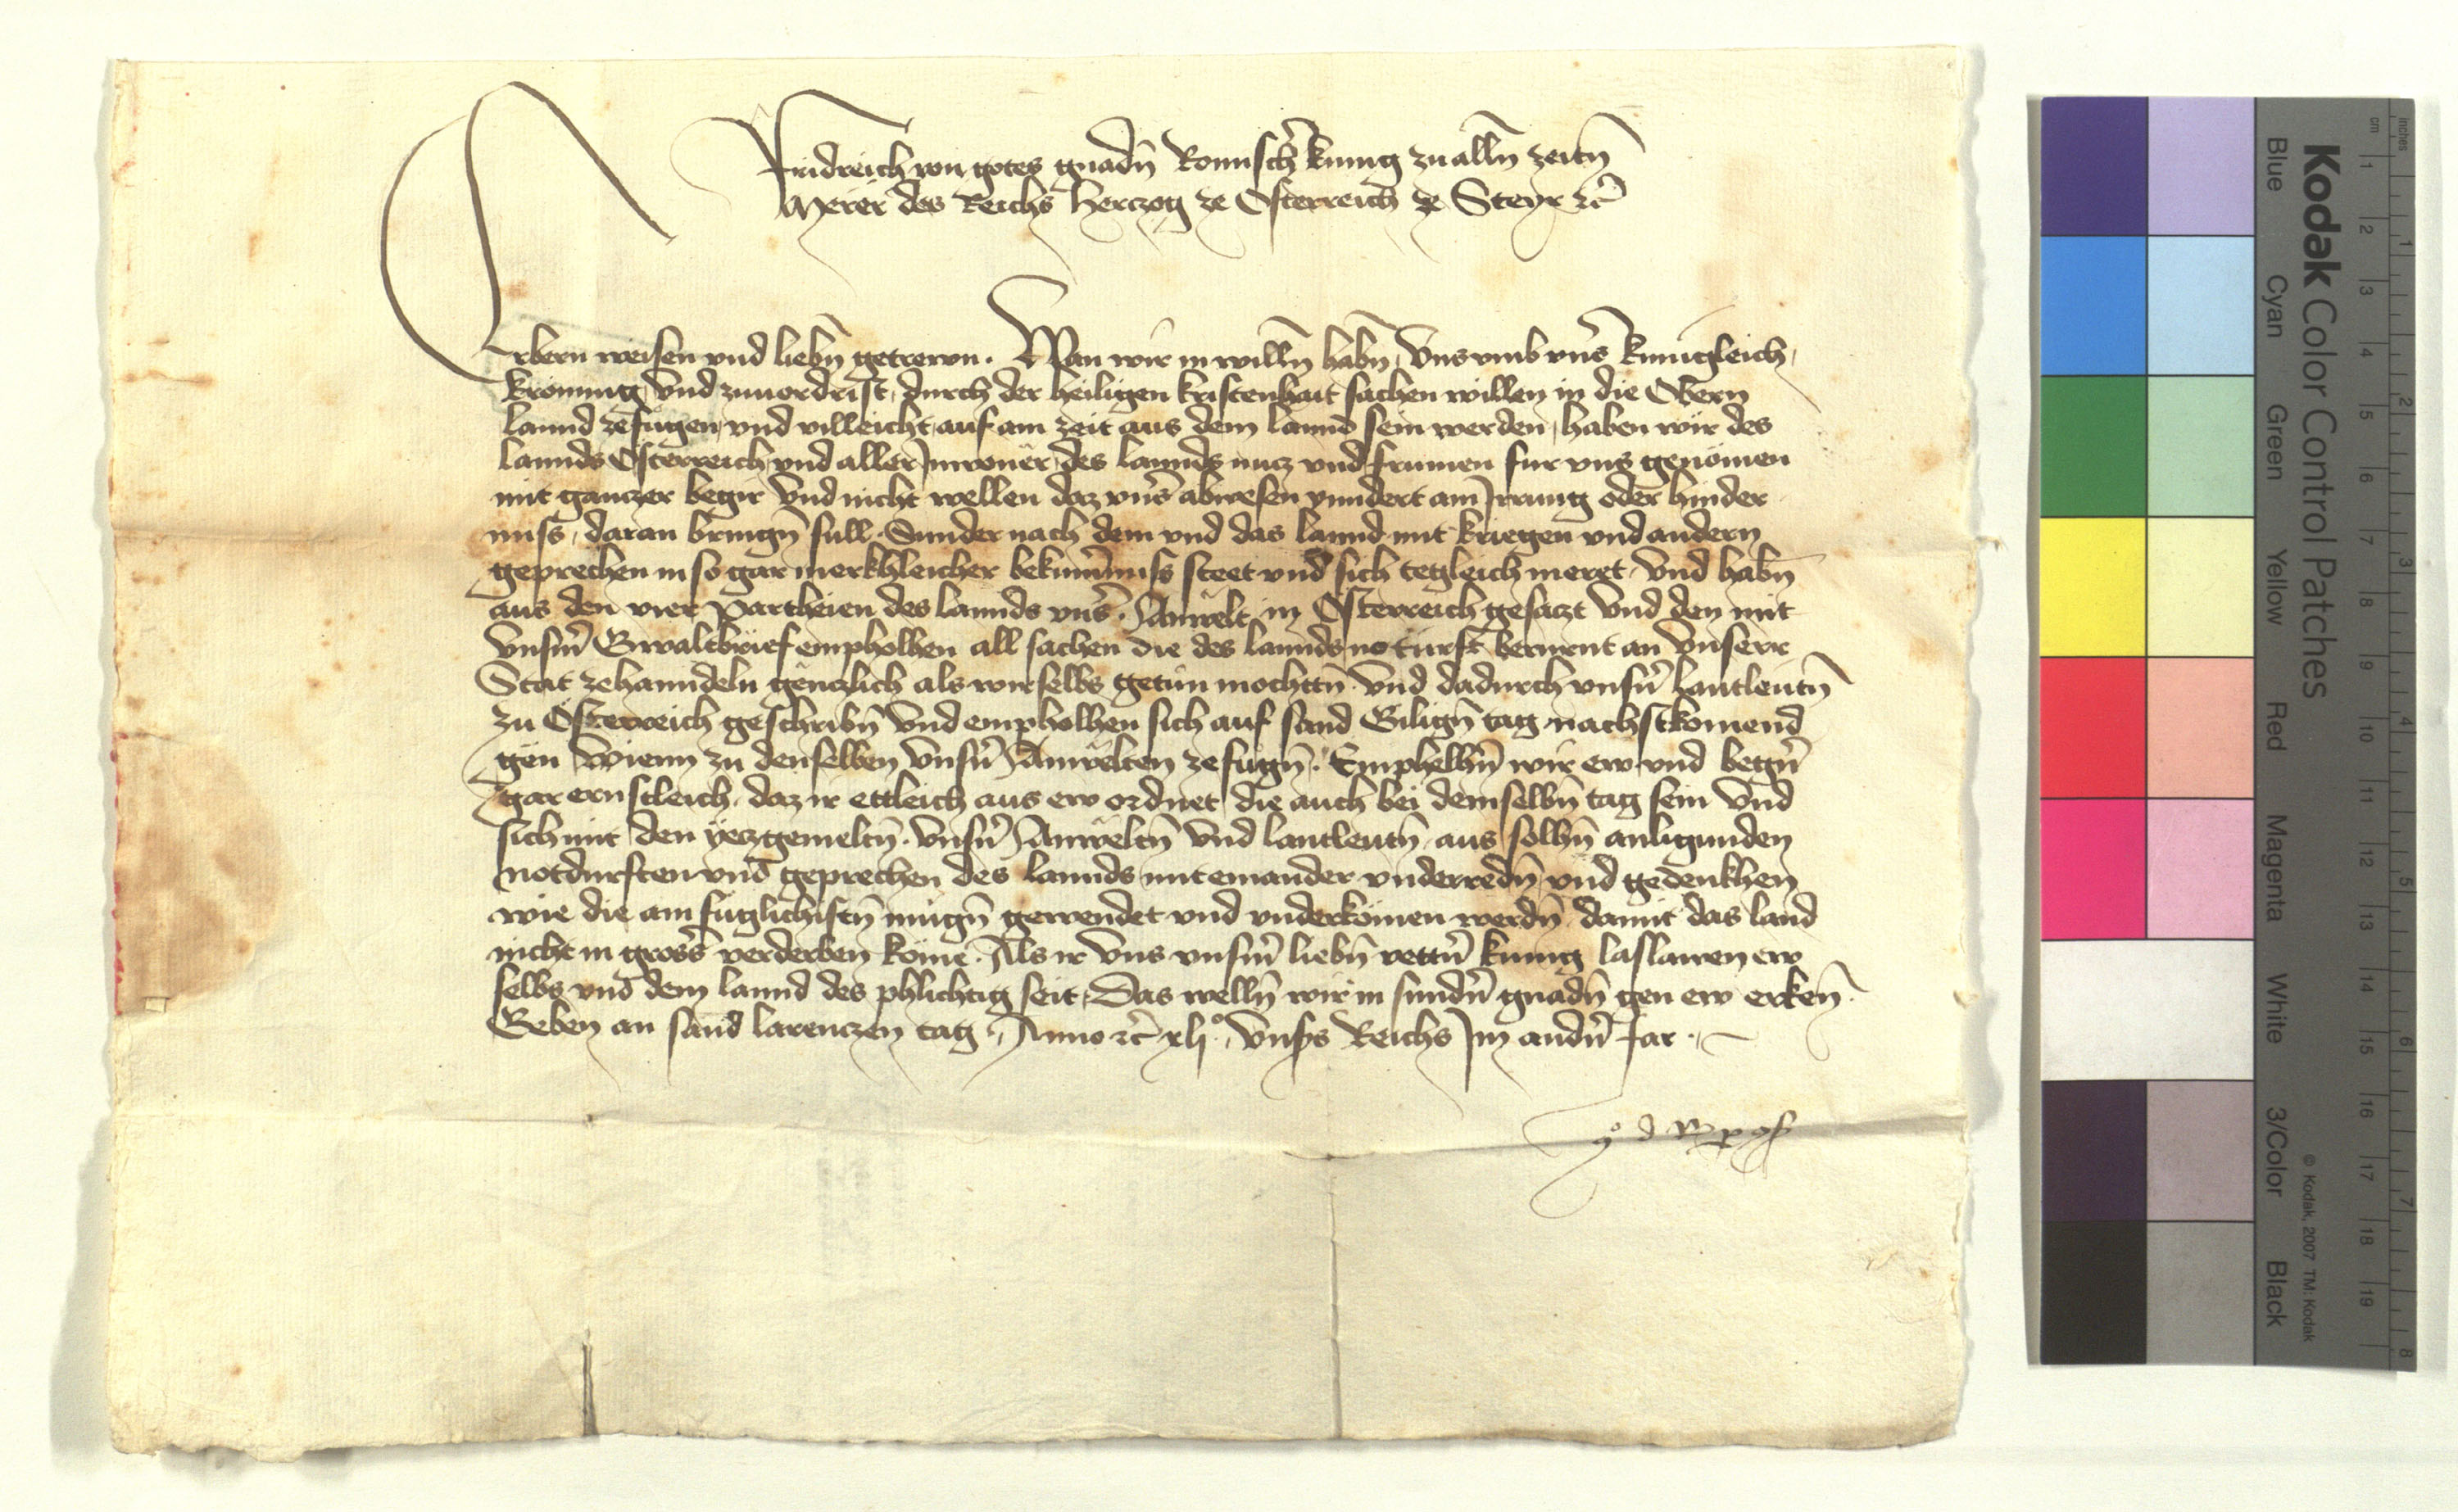 Fridreich von gotes gnadn̄ Romischr̄ kunig zu alln̄ zeitn̄
Merer des Reichs Herczog ze Österreich ze Steyr ꝛc̄
Erbern weisen vnd liebn̄ getrewn. Wan wir in willn̄ habn̄, Vns vmb vns̄ kunigleich
kronung, Vnd zuuordrist, durch der heiligen kristenhait sachen willen in die Obern
lannd zefugen, vnd villeicht, auf ain zeit aus dem lannd sein werden, haben wir des
lannds Österreich, vnd aller Inwoner, des lannds nucz vnd frumen fur vns genomen
mit ganczer begir Vnd nicht wellen daz vns̄ abwesen yundert ain Irrung oder hinder
nuss, daran bringn̄ sull. Sunder nach dem vnd das lannd mit kriegen vnd andern
geprechen in so gar merkhleicher bekumernuss steet vnd sich tegleich meret, Vnd habn̄
aus den vier Partheien des lannds vns̄. Anwelt in Österreich gesaczt Vnd den mit
Vnsm̄ Gwaltbrief empholhen all sachen die des lannds noturft berurnt an Vnserr
Stat zehanndeln genczlich als wir selbs getun mochttn̄. Vnd dadurch vnsn̄ lantleutn̄
zu Österreich geschribn̄ Vnd empholhen sich auf sand Gilign̄ tag nachstkomend
gen Wienn zu denselben Vnsn̄ Anwelten zefugn̄. Emphelhn̄ wir ew vnd begern̄
gar ernstleich, daz ir ettleich aus ew ordnet die auch bei demselbn̄ tag sein Vnd
sich mit den yeczgemeltn̄. Vnsn̄ Anweltn̄ Vnd lantleutn̄ aus solhn̄ anligunden
notdurften vnd geprechen des lannds miteinander vnderredn̄, vnd gedenkhen
wie die am fuglichistn̄ mugn̄ gewendet vnd vnderkomen werdn̄ damit das land
nicht in gross̄ verderben kome. Als ir Vns vnsm̄ liebn̄ vettn̄ kunig laslawen ew
selbs vnd dem lannd des phlichtig seit, Das welln̄ wir in sundn̄ gnadn̄ gen ew erken̄.
Geben an sand larenczen tag. Anno ꝛc̄ xliº. Vnsꝭs Reichs Im andn̄ Jar.